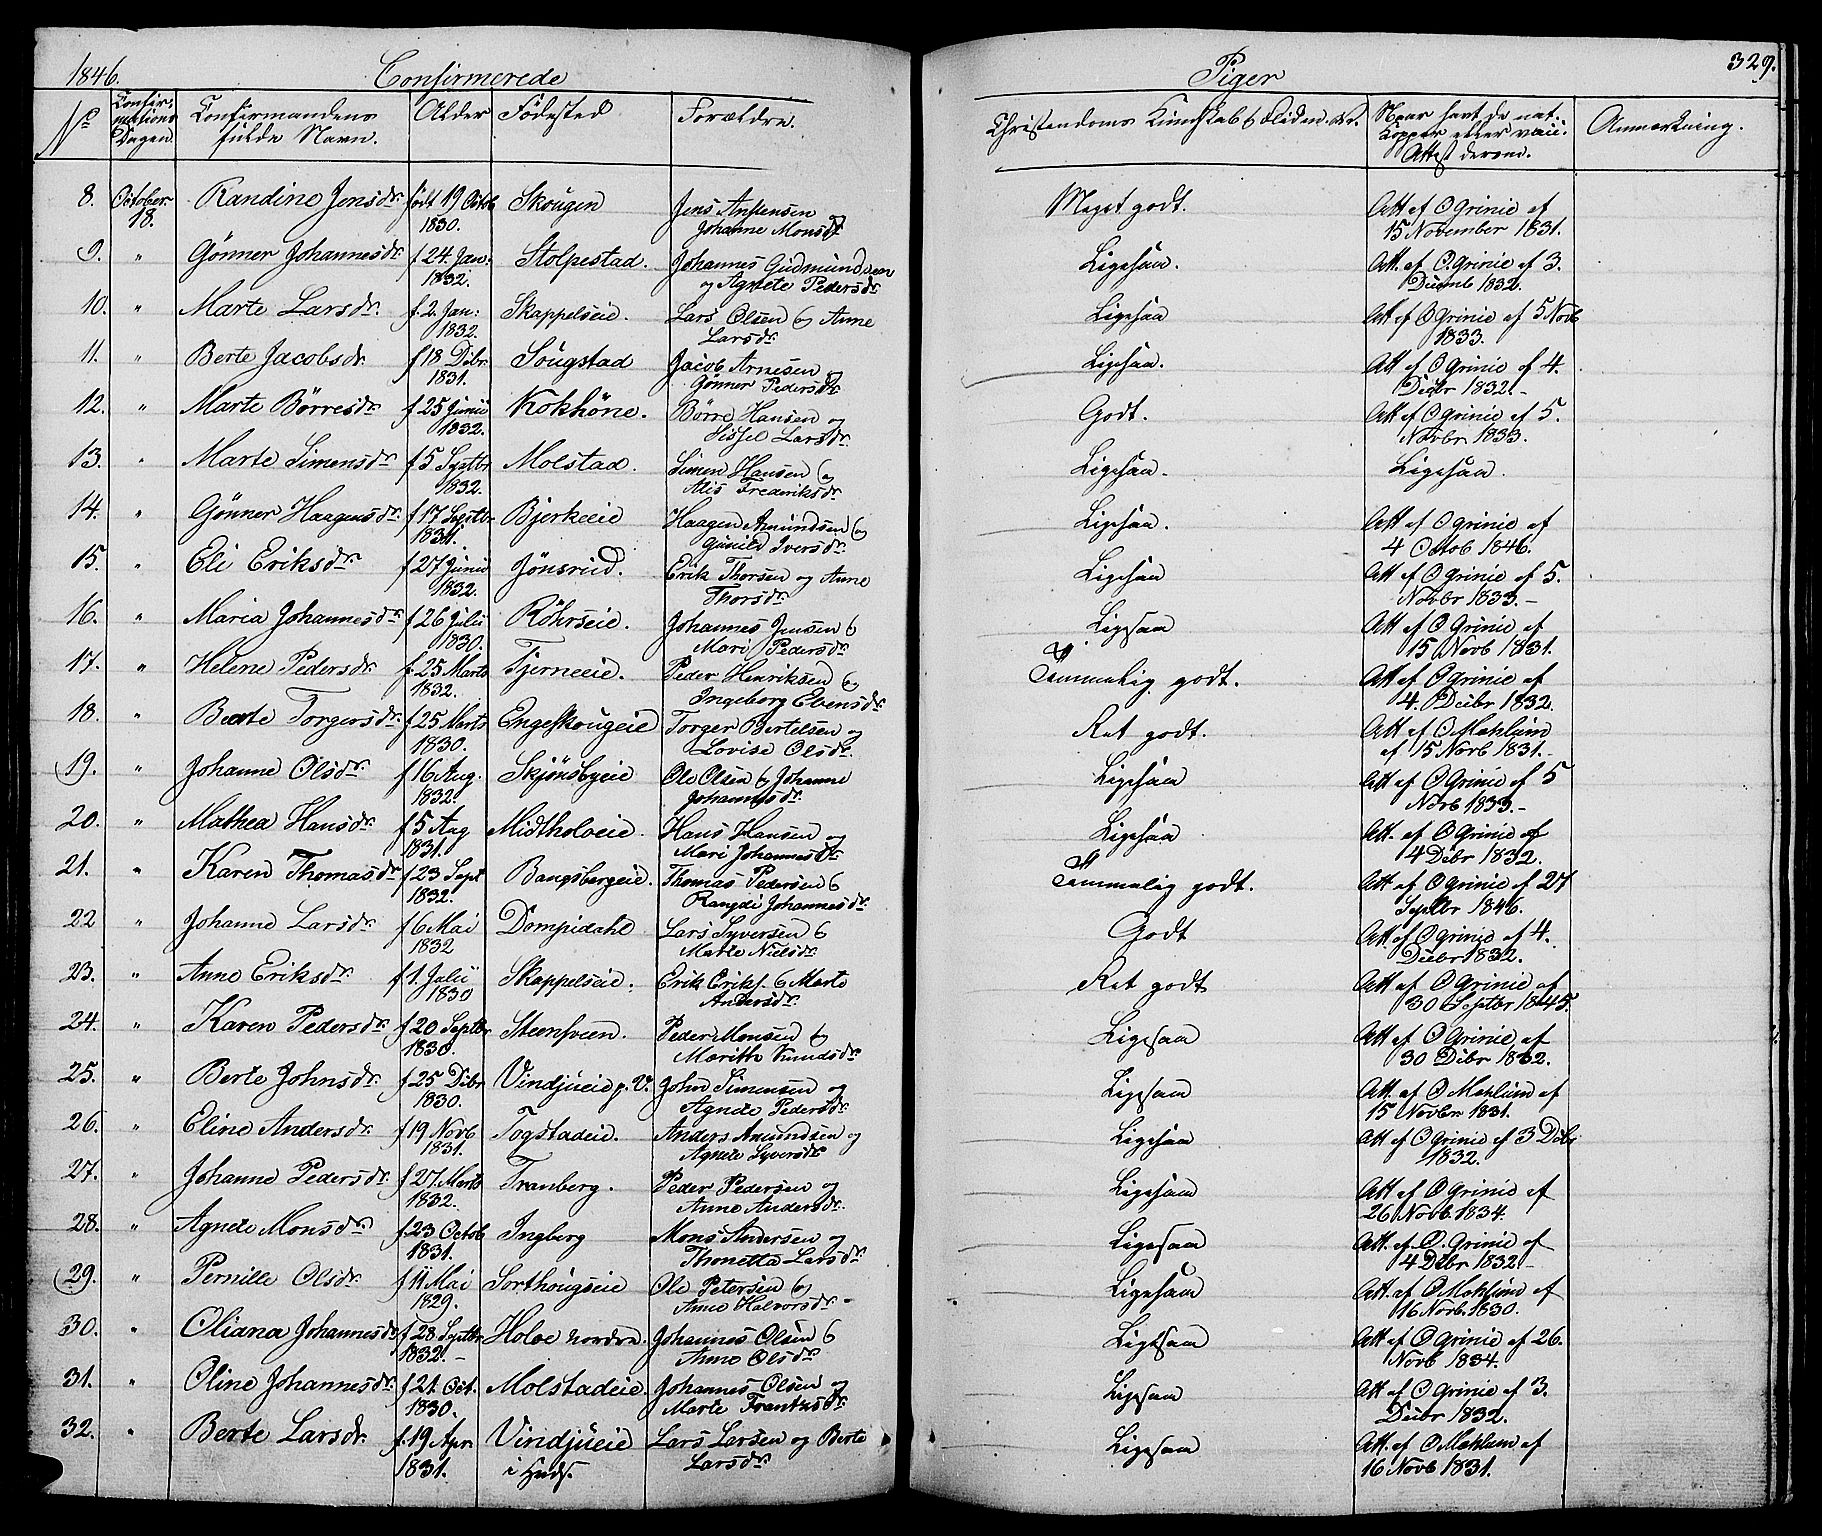 1846. Confirmerede Piger 329.
No Confir- mations Dagen Confirmandens fulde Navn. Alder Fødested Forældre. Christendoms Kundskab og Fliden. Naar havt de nat. Kopper eller vacc. Attest derom. Anmærkning.
8. October 18. Randine Jensdr. født 19 Octob 1830. Skougen Jens Johanne Monsd Meget godt. Att af O Grinie af 15 November 1831.
9. " Gønner Johannesdr. f 24. Jan. 1832. Stolpestad. Johannes Gudmundsen og Agnete Pedersdr. Ligesaa. Att. af O. Grinie af 3. Decmb 1832.
10. " Marte Larsdr. f. 2. Jan: 1832. Skappelseie. Lars Olsen og Anne Larsdr. Ligesaa Att af O Grinie af 5 Novb 1833.
11. " Berte Jacobsdr. f 18 Debr. 1831. Sougstad Jacob Arnesen og Gønner Pedersdr. Ligesaa. Att af O Grinie af 4. Debr 1832.-
12. " Marte Börresdr. f 25 Junii 1832. Kokhöne. Börre Hansen og Sissel Larsdr. Godt. Att af O Grinie af 5. Novbr 1833.
13. " Marte Simensdr. f 5 Septbr 1832. Molstad. Simen Hansen og Alis Frederiksdr. Ligesaa. Ligesaa.
14. " Gønner Haagensdr. f 17 Septbr. 1831. Bjerkeeie Haagen Amundsen og Gunild Iversdr. Ligesaa. Att af O Grinie af 4 Octob 1846.
15. " Eli Eriksdr. f 27 Junii 1832. Jönsrud. Erik Thorsen og Anne Thorsdr. Ligesaa Att af O Grinie af 5. Novbr 1833.-
16. " Maria Johannesdr. f 26 Julii 1830. Röhrseie. Johannes Jensen og Mari Pedersdr. Ligesaa Att af O Grinie af 15 Novb 1831.
17. " Helene Pedersdr. f. 25 Marts 1832. Tjerneeie. Peder Henriksen og Ingeborg Evensdr. Temmelig godt. Att af O Grinie af 4. Decbr 1832.
18. " Berte Torgersdr. f 25 Marts 1830. Engeskougeie Torger Bertelsen og Lovise Olsdr. Ret godt. Att af O Mæhlum af 15 Novb 1831.-
19. " Johanne Olsdr. f 16 Aug. 1832. Skjönsbyeie Ole Olsen og Johanne Johannesdr. Ligesaa Att af O Grinie af 5 Novb 1833.-
20. " Mathea Hansdr. f 5 Aug 1831. Midtholoeie. Hans Hansen og Mari Johannesdr. Ligesaa Att. af O Grinie af 4 Debr 1832.
21. " Karen Thomasdr. f 23 Sept 1832. Bangsbergeie. Thomas Pedersen og Rangdi Johannesdr. Temmelig godt. Att af O Grinie af 27 Septbr 1846.
22 " Johanne Larsdr. f 6 Mai 1832 Dompidahl Lars Syversen og Marte Nielsdr. Godt Att. af O Grinie af 4. Debr 1832.
23. " Anne Eriksdr. f 1. Julii 1830 Skappelseie. Erik Eriks. og Marte Andersdr. Ret godt Att af O Grinie af 30 Septbr 1845.
24. " Karen Pedersdr. f 20 Septbr. 1830. Steensveen. Peder Monsen og Marithe Knudsdr. Ligesaa Att af O Grinie af 30 Debr 1832.
25. " Berte Johnsdr. f 25 Debr 1830. Vindjueie p. V. John Simensen og Agnete Pedersdr. Ligesaa Att. af O Mæhlum af 15 Novbr 1831.
26. " Eline Andersdr. f 19 Novb 1831. Togstadeie. Anders Amundsen og Agnete Syversdr Ligesaa Att af O Grinie af 3 Debr 1832.
27. " Johanne Pedersdr. f 27. Marts 1832. Tranberg. Peder Pedersen og Anne Andersdr. Ligesaa Att af O Grinie af 26 Novb. 1834.
28. " Agnete Monsdr. f. 23 Octob 1831. Ingberg Mons Andersen og Thonetta Larsdr. Ligesaa Att. af O. Grinie af 4 Debr 1832-
29. " Pernille Olsdr. f 11 Mai 1829. Sorthougseie Ole Petersen og Anne Halvorsdr. Ligesaa Att. af O Mæhlum af 16 Novb. 1830.
30. " Oliana Johannesdr. f. 28 Septbr. 1832. Holoe nordre. Johannes Olsen og Anne Olsdr. Ligesaa Att af O Grinie af 26. Novb 1834.
31. " Oline Johannesdr. f. 21. Oct. 1830. Molstadeie. Johannes Olsen og Marte Frantzsdr. Ligesaa Att af O Grinie af 3. Debr 1832.
32. " Berte Larsdr. f. 19 Apr. 1831. Vindjueie i Huds. Lars Larsen og Berte Larsdr. Ligesaa Att. af O Mæhlum af 16 Novb 1831.